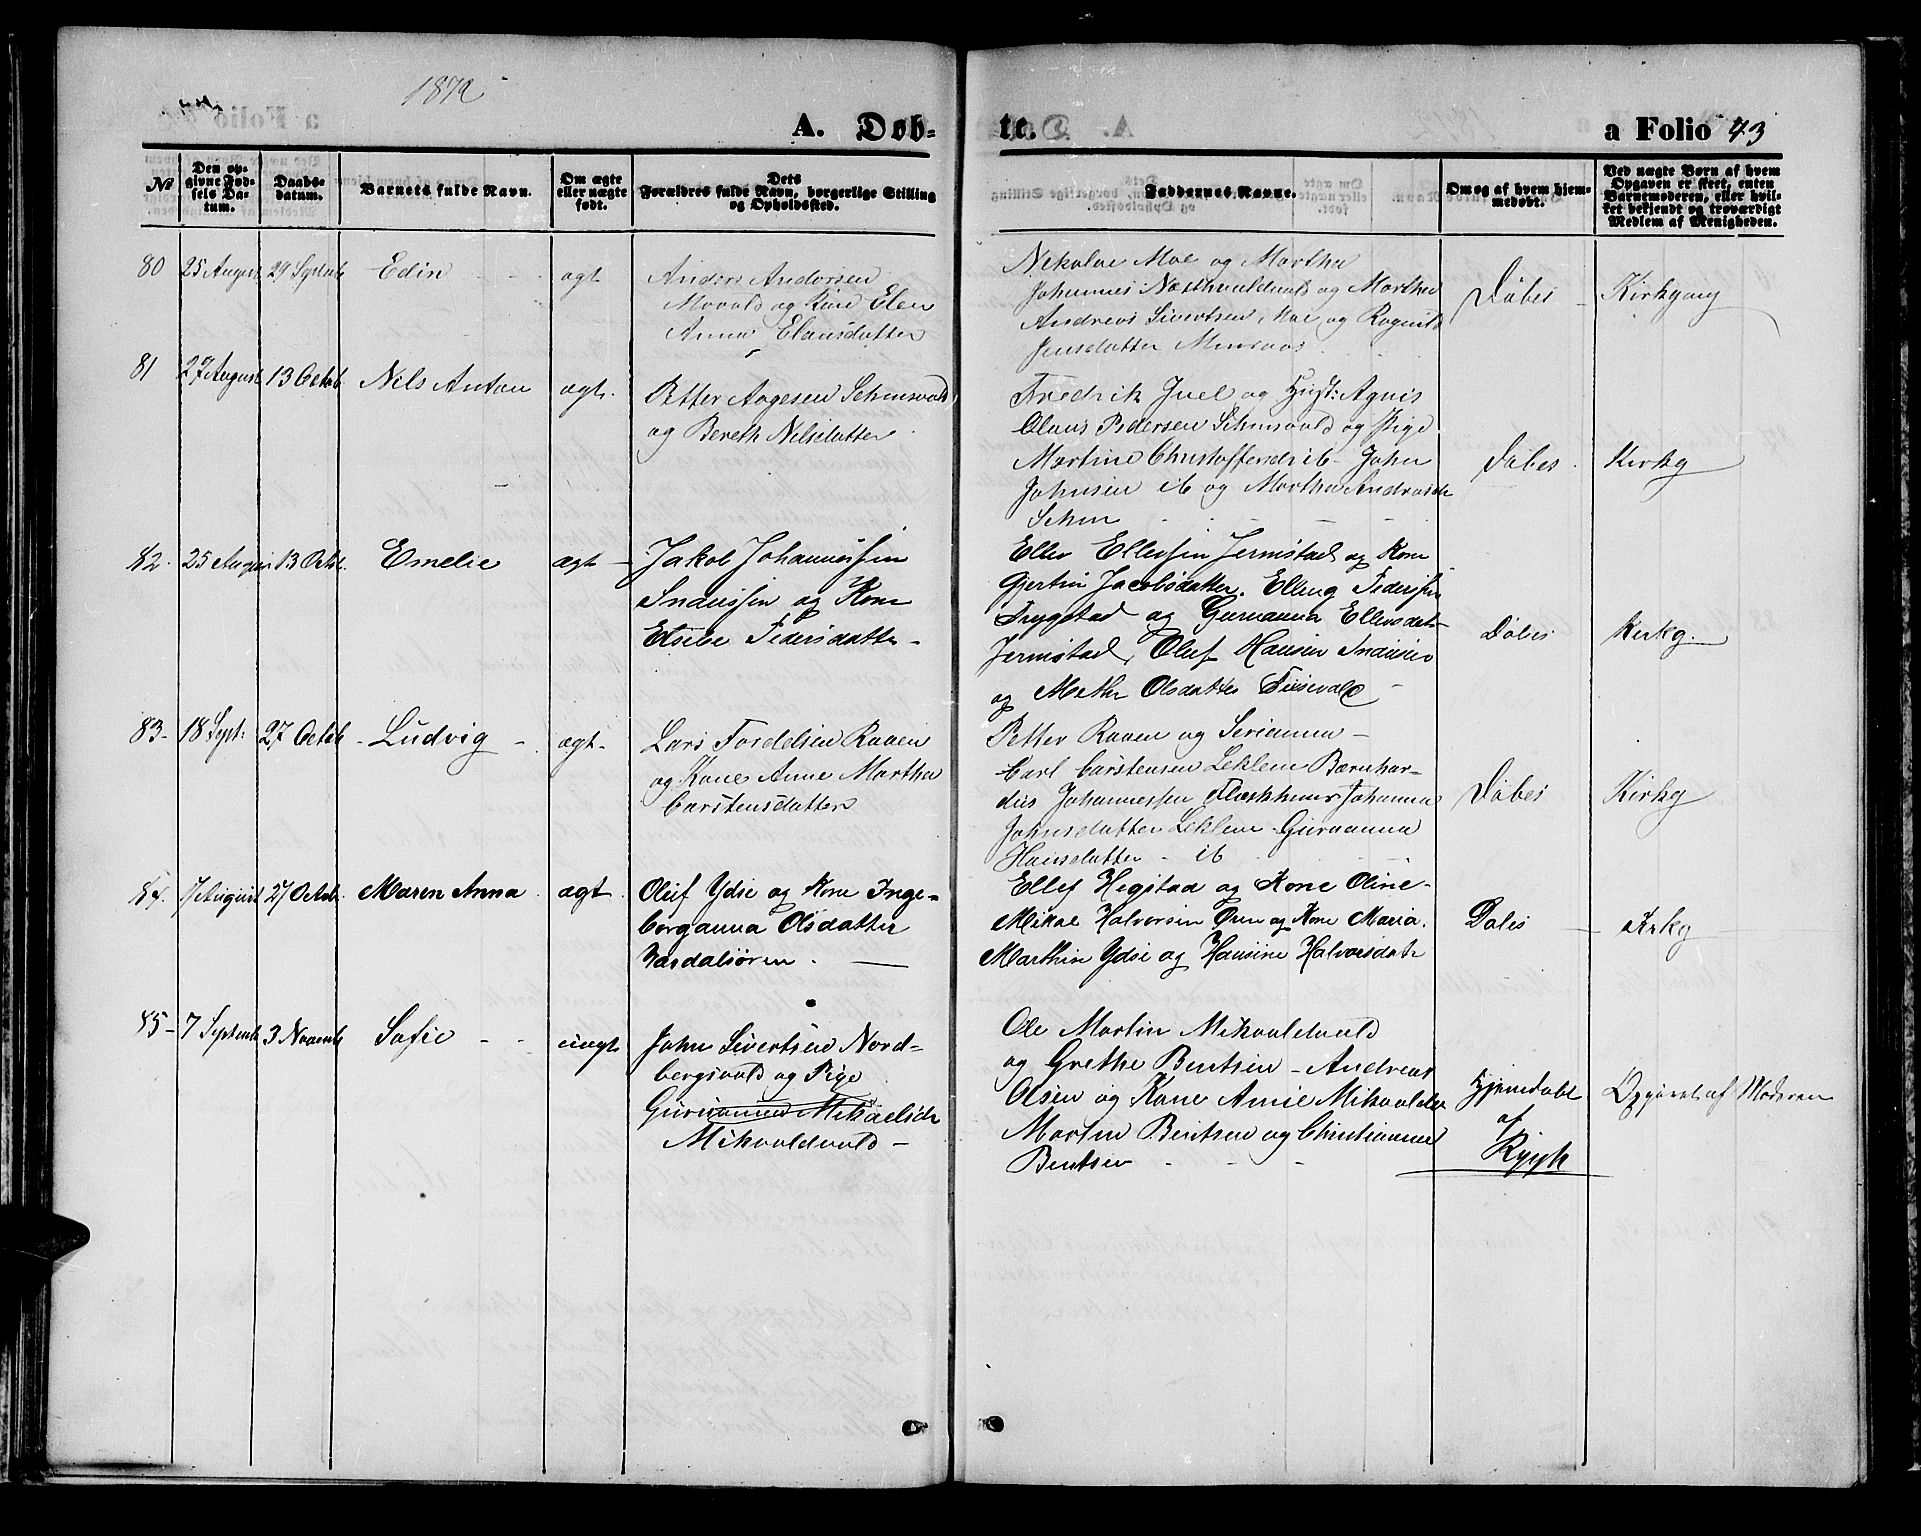 1872
A. Døb-
te.
a Folio 43
№
Den op-
givne Fød-
sels Da-
tum.
Daabs-
datum.
Barnets fulde Navn.
Om ægte
eller nægte
født.
Dets
Forældres fulde Navn, borgerlige Stilling
og Opholdssted.
Faddernes Navne.
Om og af hvem hjem-
medøbt.
Ved nægte Børn af hvem
Opgaven er skeet, enten
Barnemoderen, eller hvil-
ket bekjendt og troværdigt
Medlem af Menigheden.
80 25 August 29 Septemb Edin - - ægt
Anders Andersen
og Kone Elen
Anna Elausdatter
Nikolai Moe og Martha
Johannes og Martha
Andreas Sivertsen Moe og Ragnild
Jensdatter
Døbes - Kirkgang
81 27 August 13 Octob Nils Anton ægt.
Petter Aagesen
og Bereth Nilsdatter
Fredrik Juel og Hust: Agnis
Olaus Pedersen og Pige
Martine Christoffersdr ib - John
Johnsen ib og Martha Andreasdr
Døbes. Kirkg
82. 25 August 13 Octbr. Emelie ægt -
Jakob Johannessen
Indussen og Kone
Elsebe Pedersdatter -
Ellev Ellevsen Jermstad og Kone
Gjertin Jacobsdatter. Elling Pedersen
Trygstad og Gurianna Ellevsdatr
Jermstad, Oluf Hansen Indusen
og Methe Olsdatter -
Døbes Kirkg.
83- 18 Sept. 27 Octob - Ludvig - ægt-
Lars Tordelsen Raaen
og Kone Anne Martha
Carstensdatter
Petter Raaen og Serianna -
Carl Carstensen Leklem Bærnhar-
dus Johannessen Johanna
Johnsdatter Leklem - Guruanna
Hansdatter - ib
Døbes Kirkg
84. 17 August 27 Octob. Maren Anna. ægt.
Oluf Ydse og Kone Inge-
borganna Olsdatter
Værdalsøren. -
Ellef Hegstad og Kone Oline-
Mikal Halvorsen Øren og Kone Maria.
Marthin Ydse og Hansine Halvorsdatr
Døbes - Kirkg
85- 7 Septemb 3 Novemb Sofie - - uægt
John Sivertsen Nord-
bergsvald og Pige
Gurianna Mikaelsdr
Mikvoldvald -
Ole Martin Mikvoldvald
og Grethe Bentsen - Andreas
Olsen og Kone Anne Mikvoldvald
Martin Bentsen og Christianna
Bentsen - - -
Hjemdøbt
af
Rygh
Opgivet af Moderen